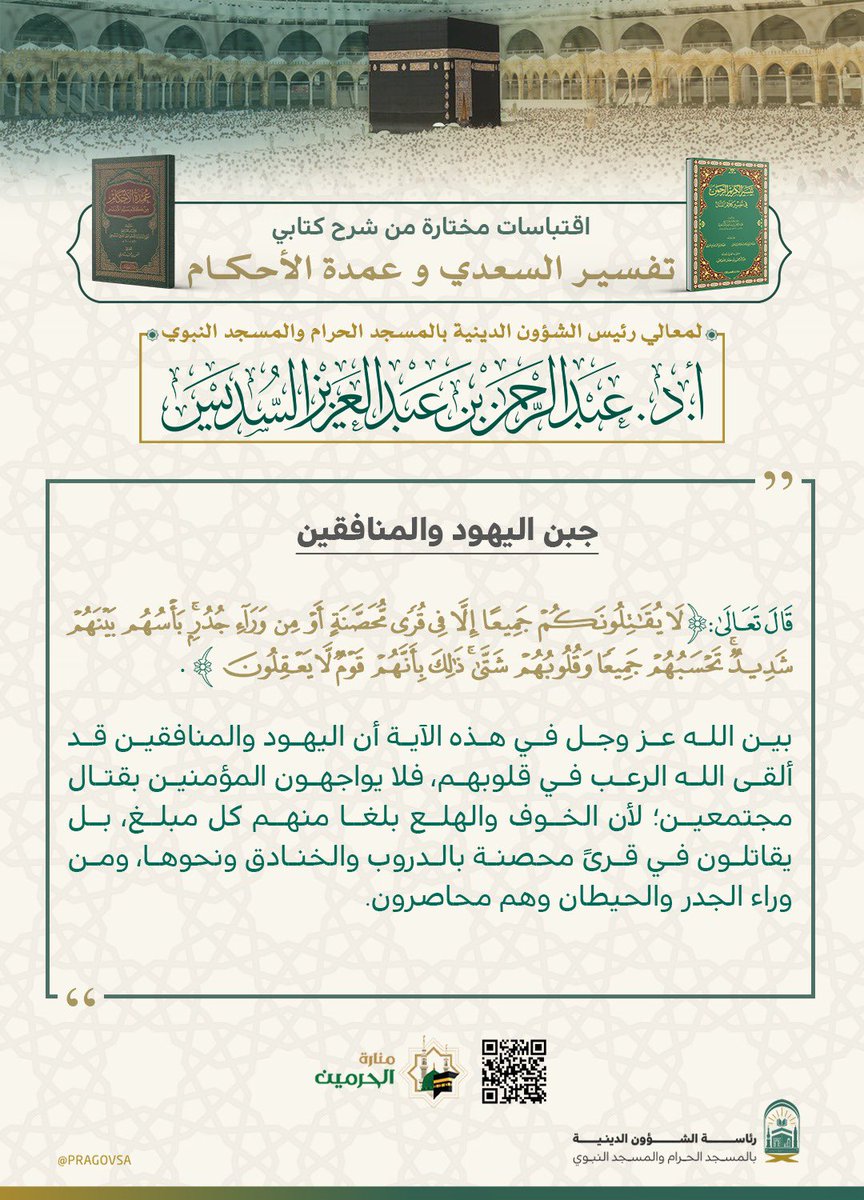 اقتباسات مختارة من شرح كتابي
تفسير السعدي و عمدة الأحكام
لمعالي رئيس الشؤون الدينية بالمسجد الحرام والمسجد النبوي
أ.د. عَبْدُ الرَّحْمَنِ بْنُ عَبْدِ الْعَزِيزِ السُّدَيْسِ
جبن اليهود والمنافقين
قَالَ تَعَالَىٰ: ﴿لَا يُقَٰتِلُونَكُمۡ جَمِيعًا إِلَّا فِي قُرٗى مُّحَصَّنَةٍ أَوۡ مِن وَرَآءِ جُدُرِۭۚ بَأۡسُهُم بَيۡنَهُمۡ
شَدِيدٞۚ تَحۡسَبُهُمۡ جَمِيعٗا وَقُلُوبُهُمۡ شَتَّىٰۚ ذَٰلِكَ بِأَنَّهُمۡ قَوۡمٞ لَّا يَعۡقِلُونَ﴾.
بين الله عز وجل في هذه الآية أن اليهود والمنافقين قد
ألقى الله الرعب في قلوبهم، فلا يواجهون المؤمنين بقتال
مجتمعين؛ لأن الخوف والهلع بلغا منهم كل مبلغ، بل
يقاتلون في قرىً محصنة بالدروب والخنادق ونحوها، ومن
وراء الجدر والحيطان وهم محاصرون.
منارة
الحرمين
رئاسة الشؤون الدينية
بالمسجد الحرام والمسجد النبوي
@PRAGOVSA